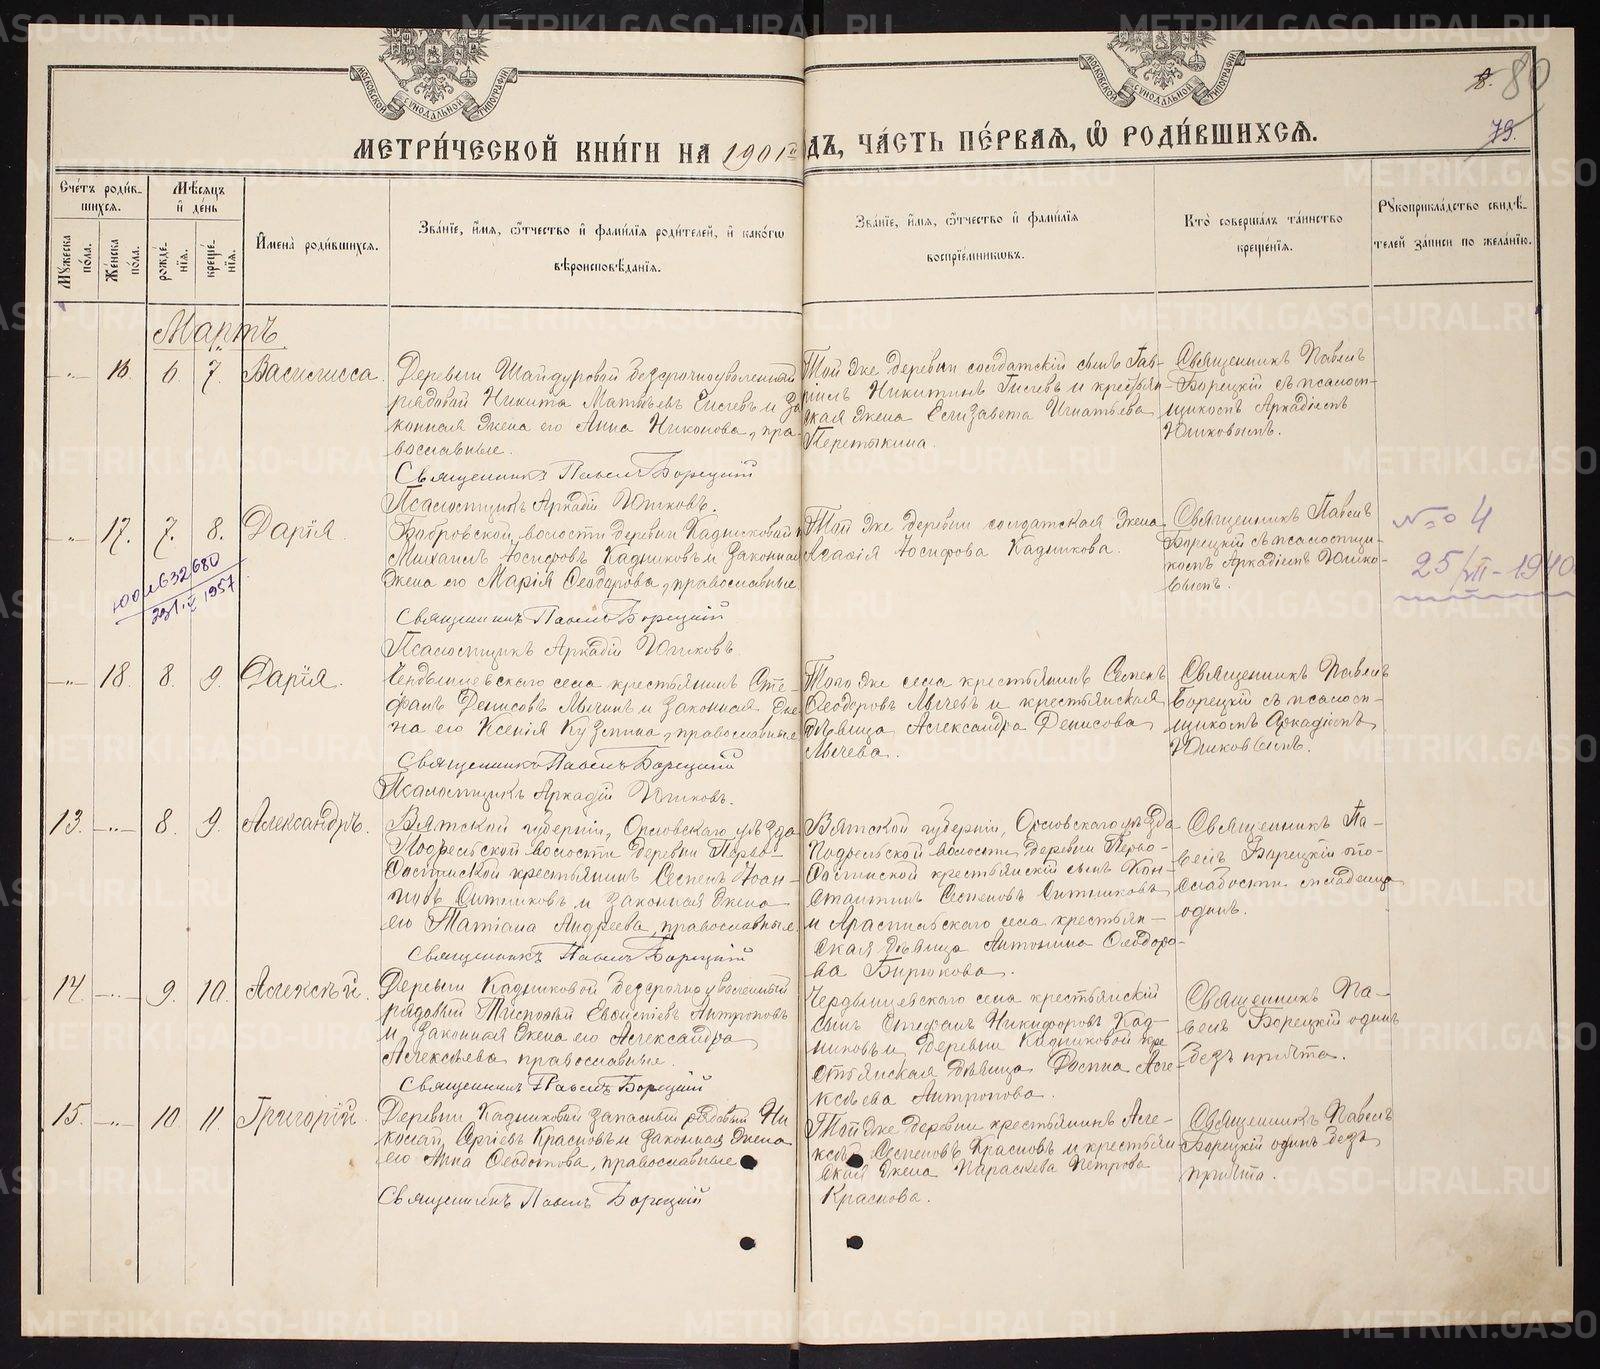 МОСКОВСКОЙ СѴНОДАЛЬНОЙ ТИПОГРАФІИ
МОСКОВСКОЙ СѴНОДАЛЬНОЙ ТИПОГРАФІИ
80
79.
МЕТРИ́ЧЕСКОЙ КНИ́ГИ НА 1901й
ДЪ, ЧА́СТЬ ПЕ́РВАѦ, Ѽ РОДИ́ВШИХСѦ.
Сче́тъ роди́вшихсѧ.
Мꙋ́жеска по́ла.
Же́нска по́ла.
Мѣ́сѧцъ и҆ де́нь
рожде́нїѧ.
креще́нїѧ.
И҆мена̀ роди́вшихсѧ.
Зва́нїе, и҆́мѧ, ѻ҆́тчество и҆ фами́лїѧ роди́телей, и҆ како́гѡ
вѣроисповѣ́данїѧ.
Зва́нїе, и҆́мѧ, ѻ҆́тчество и҆ фами́лїѧ
воспрїе́мникѡвъ.
Кто̀ соверша́лъ та́инство
креще́нїѧ.
Рꙋкоприкла́дство свидѣ́-
телей за́писи по жела́нїю.
Мартъ
-„- 16. 6 7. Васисисса.
Деревни Шайдуровой безсрочноуволенный
рядовой Никита Матвѣевъ и за
конная жена его Анна Никонова, пра-
вославные.
Священникъ Павелъ Борецкій
Псаломщикъ Аркадій Юшковъ.
Той же деревни солдатскій сынъ Гав-
ріилъ Никитинъ и крестьян-
ская жена Елизавета Игнатьева
Перетыкина.
Священникъ Павелъ
Борецкій съ псалом-
щикомъ Аркадіемъ
Юшковымъ.
-„- 17. 7. 8. Дарія.
Бобровской волости деревни Кадниковой
Михаилъ Іосифовъ Кадниковъ и законная
жена его Марія Ѳеодорова, православные
Священникъ Павелъ Борецкій
Псаломщикъ Аркадій Юшковъ.
Той же деревни солдатская жена
Агафія Іосифова Кадникова.
Священникъ Павелъ
Борецкій съ псаломщи-
комъ Аркадіемъ Юшко-
вымъ.
№ 4
25/VII-1940
632680
1957
-„- 18. 8. 9. Дарія.
села крестьянинъ Сте-
фанъ Денисовъ и законная же-
на его Ксенія Кузмина, православные
Священникъ Павелъ Борецкій
Псаломщикъ Аркадій Юшковъ.
Того же села крестьянинъ Семенъ
Ѳеодоровъ и крестьянская
дѣвица Александра Денисова
Священникъ Павелъ
Борецкій съ псалом-
щикомъ Аркадіемъ
Юшковымъ.
13. -„- 8. 9. Александръ.
Вятской губерніи, Орловскаго уѣзда
волости деревни
крестьянинъ Семенъ Іоан-
новъ Ситниковъ и законная жена
его Татіана Андреева, православные.
Священникъ Павелъ Борецкій
Вятской губерніи, Орловскаго уѣзда
волости деревни
крестьянскій сынъ Кон-
стантинъ Семеновъ Ситниковъ
и Арамильскаго села крестьян-
ская дѣвица Антонина Ѳеодоро-
ва Бирюкова.
Священникъ Па-
велъ Борецкій по
слабости младенца
одинъ.
14. -„- 9. 10. Алексѣй.
Деревни Кадниковой безсрочноуволенный
рядовый Тимофей Антроповъ
и законная жена его Александра
Алексѣева православные.
Священникъ Павелъ Борецкій
села крестьянскій
сынъ Стефанъ Никифоровъ Кад-
никовъ и деревни Кадниковой кре
стьянская дѣвица Алек-
ксѣева Антропова.
Священникъ Па-
велъ Борецкій одинъ
безъ причта.
15. -„- 10. 11. Григорій.
Деревни Кадниковой запасный рядовый Ни
колай Красновъ и законная жена
его Анна, православные
Священникъ Павелъ Борецкій
Той же деревни крестьянинъ Але-
ксѣй Семеновъ Красновъ и крестьян
ская жена Параскева Петрова
Краснова.
Священникъ Павелъ
Борецкій одинъ безъ
причта.
METRIKI.GASO-URAL.RU